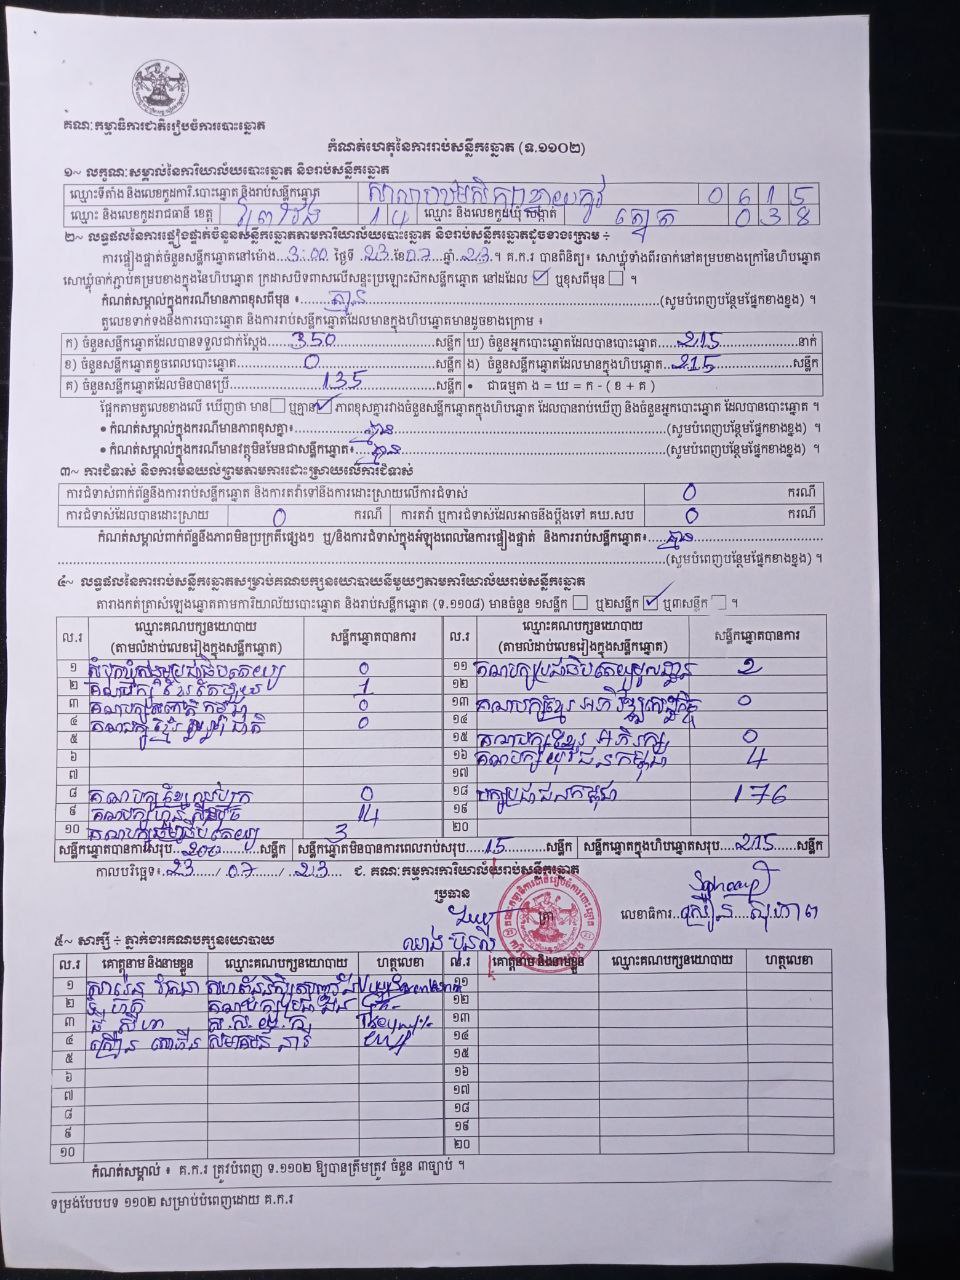 គណៈកម្មាធិការជាតិរៀបចំការបោះឆ្នោត
កំណត់ហេតុនៃការរាប់សន្លឹកឆ្នោត (ទ.១១០២)
១~ លក្ខណៈសម្គាល់នៃការិយាល័យបោះឆ្នោត និងរាប់សន្លឹកឆ្នោត
ឈ្មោះទីតាំង និងលេខកូដការិ.បោះឆ្នោត និងរាប់សន្លឹកឆ្នោត 0 6 1 5
ឈ្មោះ និងលេខកូដរាជធានី ខេត្ត ព្រៃវែង 14 ឈ្មោះ និងលេខកូដឃុំ សង្កាត់ 0 3 8
២~ លទ្ធផលនៃការផ្ទៀងផ្ទាត់ចំនួនសន្លឹកឆ្នោតតាមការិយាល័យបោះឆ្នោត និងរាប់សន្លឹកឆ្នោតដូចខាងក្រោម ÷
ការផ្ទៀងផ្ទាត់ចំនួនសន្លឹកឆ្នោតនៅម៉ោង...3:00 ថ្ងៃទី 23 ខែ 07 ឆ្នាំ 23 ។ គ.ក.រ បានពិនិត្យ៖ សោឃ្មុំទាំងពីរចាក់នៅគម្របខាងក្រៅនៃហិបឆ្នោត
សោឃ្មុំចាក់ភ្ជាប់គម្របខាងក្នុងនៃហិបឆ្នោត ក្រដាសបិទពាសលើសន្ទះប្រឡោះស៊ិកសន្លឹកឆ្នោត នៅដដែល ឬខុសពីមុន ។
កំណត់សម្គាល់ក្នុងករណីមានភាពខុសពីមុន ៖ គ្មាន (សូមបំពេញបន្ថែមផ្នែកខាងខ្នង) ។
តួលេខទាក់ទងនឹងការបោះឆ្នោត និងការរាប់សន្លឹកឆ្នោតដែលមានក្នុងហិបឆ្នោតមានដូចខាងក្រោម ៖
ក) ចំនួនសន្លឹកឆ្នោតដែលបានទទួលជាក់ស្ដែង 350 សន្លឹក ឃ) ចំនួនអ្នកបោះឆ្នោតដែលបានបោះឆ្នោត 215 នាក់
ខ) ចំនួនសន្លឹកឆ្នោតខូចពេលបោះឆ្នោត 0 សន្លឹក ង) ចំនួនសន្លឹកឆ្នោតដែលមានក្នុងហិបឆ្នោត 215 សន្លឹក
គ) ចំនួនសន្លឹកឆ្នោតដែលមិនបានប្រើ 135 សន្លឹក • ជាធម្មតា ង = ឃ = ក - ( ខ + គ )
ផ្អែកតាមតួលេខខាងលើ ឃើញថា មាន ឬគ្មាន ភាពខុសគ្នារវាងចំនួនសន្លឹកឆ្នោតក្នុងហិបឆ្នោត ដែលបានរាប់ឃើញ និងចំនួនអ្នកបោះឆ្នោត ដែលបានបោះឆ្នោត ។
• កំណត់សម្គាល់ក្នុងករណីមានភាពខុសគ្នា៖ គ្មាន (សូមបំពេញបន្ថែមផ្នែកខាងខ្នង) ។
• កំណត់សម្គាល់ក្នុងករណីមានវត្ថុមិនមែនជាសន្លឹកឆ្នោត៖ គ្មាន (សូមបំពេញបន្ថែមផ្នែកខាងខ្នង) ។
៣~ ការជំទាស់ និងការមិនយល់ព្រមតាមការដោះស្រាយលើការជំទាស់
ការជំទាស់ពាក់ព័ន្ធនឹងការរាប់សន្លឹកឆ្នោត និងការតវ៉ាទៅនឹងការដោះស្រាយលើការជំទាស់ 0 ករណី
ការជំទាស់ដែលបានដោះស្រាយ 0 ករណី ការតវ៉ា ឬការជំទាស់ដែលអាចនឹងប្ដឹងទៅ គឃ.សប 0 ករណី
កំណត់សម្គាល់ពាក់ព័ន្ធនឹងភាពមិនប្រក្រតីផ្សេងៗ ឬ/និងការជំទាស់ក្នុងអំឡុងពេលនៃការផ្ទៀងផ្ទាត់ និងការរាប់សន្លឹកឆ្នោត៖ គ្មាន
(សូមបំពេញបន្ថែមផ្នែកខាងខ្នង) ។
៤~ លទ្ធផលនៃការរាប់សន្លឹកឆ្នោតសម្រាប់គណបក្សនយោបាយនីមួយៗតាមការិយាល័យរាប់សន្លឹកឆ្នោត
តារាងកត់ត្រាសំឡេងឆ្នោតតាមការិយាល័យបោះឆ្នោត និងរាប់សន្លឹកឆ្នោត (ទ.១១០៨) មានចំនួន ១សន្លឹក ឬ២សន្លឹក ឬ៣សន្លឹក ។
ល.រ ឈ្មោះគណបក្សនយោបាយ (តាមលំដាប់លេខរៀងក្នុងសន្លឹកឆ្នោត) សន្លឹកឆ្នោតបានការ ល.រ ឈ្មោះគណបក្សនយោបាយ (តាមលំដាប់លេខរៀងក្នុងសន្លឹកឆ្នោត) សន្លឹកឆ្នោតបានការ
១ សំបុកឃ្មុំសង្គមប្រជាធិបតេយ្យ 0 ១១ គណបក្សប្រជាធិបតេយ្យមូលដ្ឋាន 2
២ គណបក្ស ខ្មែរ រួបរួម 1 ១២
៣ គណបក្សឆន្ទៈ 0 ១៣ គណបក្សខ្មែរ អភិវឌ្ឍន៍សេដ្ឋកិច្ច 0
៤ គណបក្ស ខ្មែរ ជាតិ 0 ១៤
៥ ១៥ គណបក្សខ្មែរ អភិរក្ស 0
៦ ១៦ គណបក្ស យុវជនកម្ពុជា 4
៧ ១៧
៨ គណបក្ស ខ្មែរ 0 ១៨ បក្សប្រជាជនកម្ពុជា 176
៩ គណបក្សហ្វ៊ុនស៊ិនប៉ិច 14 ១៩
១០ គណបក្ស ធិបតេយ្យ 3 ២០
សន្លឹកឆ្នោតបានការសរុប 200 សន្លឹក សន្លឹកឆ្នោតមិនបានការពេលរាប់សរុប 15 សន្លឹក សន្លឹកឆ្នោតក្នុងហិបឆ្នោតសរុប 215 សន្លឹក
កាលបរិច្ឆេទ៖ 23 / 07 / 23 ជ. គណៈកម្មការការិយាល័យរាប់សន្លឹកឆ្នោត
ប្រធាន
ត្រា លេខាធិការ សុភាព
៥~ សាក្សី ÷ ភ្នាក់ងារគណបក្សនយោបាយ
ល.រ គោត្តនាម និងនាមខ្លួន ឈ្មោះគណបក្សនយោបាយ ហត្ថលេខា ល.រ គោត្តនាម និងនាមខ្លួន ឈ្មោះគណបក្សនយោបាយ ហត្ថលេខា
១ ១១
២ ១២
៣ សីហា ស.ស.យ.ក ១៣
៤ សមាគមន៍ នារី ១៤
៥ ១៥
៦ ១៦
៧ ១៧
៨ ១៨
៩ ១៩
១០ ២០
កំណត់សម្គាល់ ៖ គ.ក.រ ត្រូវបំពេញ ទ.១១០២ ឱ្យបានត្រឹមត្រូវ ចំនួន ៣ច្បាប់ ។
ទម្រង់បែបបទ ១១០២ សម្រាប់បំពេញដោយ គ.ក.រ